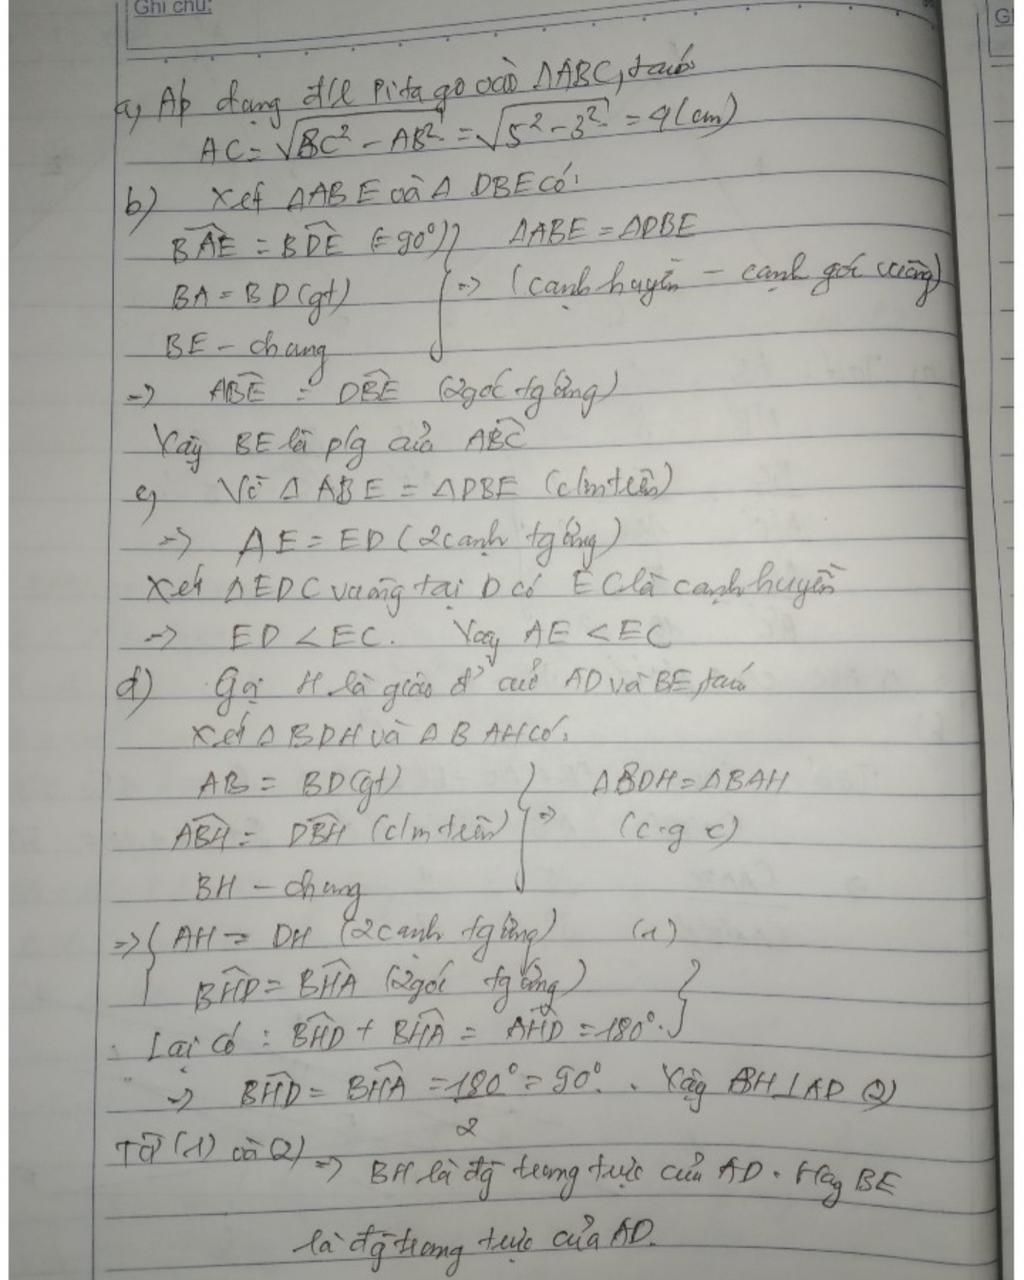 Ghi chú:
a, Áp dụng đ/l Pitago vào ΔABC, ta có
AC = √BC² - AB² = √5² - 3² = 4 (cm)
b) Xét ΔABE và Δ DBE có:
BAE = BDE (= 90°)
BA = BD (gt)
BE - chung
=> ΔABE = ΔDBE
(cạnh huyền - cạnh góc vuông)
=> ABE = DBE (2 góc tg ứng)
Vậy BE là p/g của ABC
c, Vì Δ ABE = ΔDBE (c/m trên)
=> AE = ED (2 cạnh tg ứng)
Xét ΔEDC vuông tại D có EC là cạnh huyền
=> ED < EC. Vậy AE < EC
d) Gọi H là giao đ' của AD và BE, ta có
Xét Δ BDH và Δ BAH có:
AB = BD (gt)
ABH = DBH (c/m trên)
BH - chung
=> ΔBDH = ΔBAH
(c.g c)
=> AH = DH (2 cạnh tg ứng) (1)
BHD = BHA (2 góc tg ứng)
Lại có: BHD + BHA = AHD = 180°.
=> BHD = BHA = 180°/2 = 90°. Vậy BH ⊥ AD (2)
Từ (1) và (2) => BH là đg trung trực của AD. Hay BE
là đg trung trực của AD.